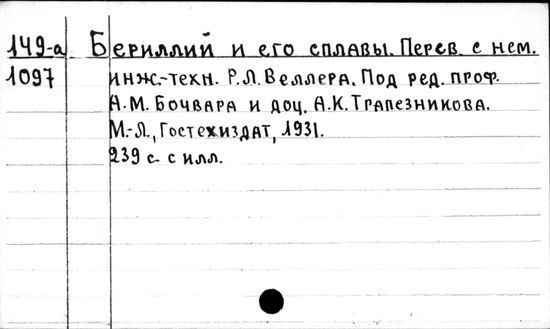 149-а Бериллий и его сплавы. Перев. с нем.
1097 инж.-техн. Р.Л. Веллера. Под ред. проф.
А.М. Бочвара и доц. А.К. Трапезникова.
М.-Л., Гостехиздат, 1931.
239 с. с илл.